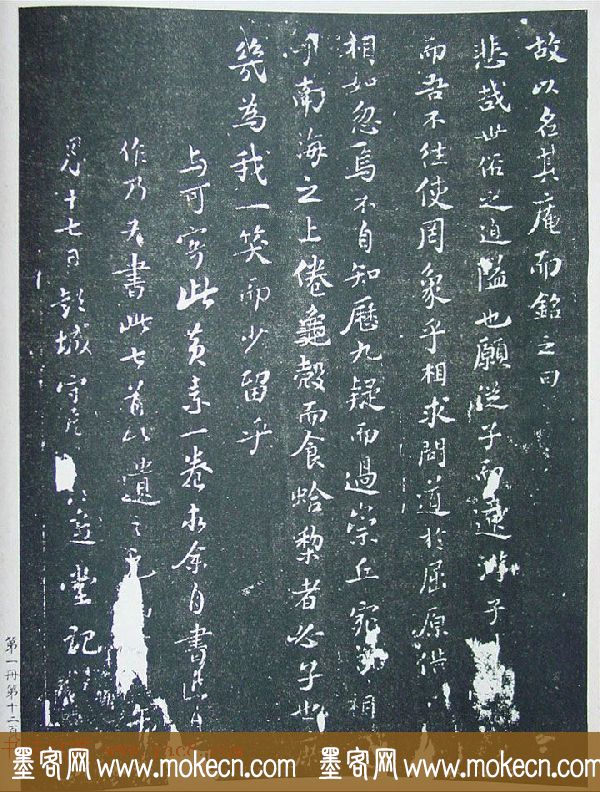 故以名其庵而銘之曰
悲哉世俗之迫隘也願從子而遠游子
而吾不往使罔象乎相求問道於屈原借
相如忽焉不自知歷九疑而過崇丘宛 相
乎南海之上倦龜殼而食蛤梨者必子也
幾為我一笑而少留乎
與可寄此黃素一卷求余自書此
作乃為書此七首以遺之元
月十七日彭城守居 堂記
第一冊第十二
墨客网 www.mokecn.com 墨客网 www.mokecn.com